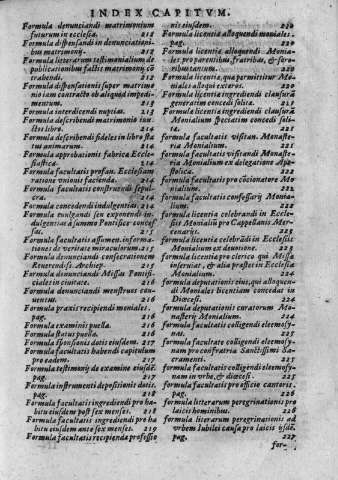 INDEX CAPITVM.
Formula denunciandi matrimonium
futurum in ecclesia. 212
Formula dispensandi in denunciationi-
bus matrimonij. 212
Formula litterarum testimonialium de
publicationibus factis matrimonij cō
trahendi. 212
Formula dispensationis super matrimo
nio iam contracto ob aliquod impedi-
mentum. 213
Formula interdicendi nuptias. 213
Formula describendi matrimonio iun-
ctos libro. 213
Formula describendi fideles in libro sta
tus animarum. 214
Formula approbationis fabrica Eccle-
siastica. 214
Formula facultatis profan. Ecclesiam
ratione vnionis facienda. 214
Formula facultatis construendi sepul-
cra. 214
Formula concedendi indulgentias. 214
Formula euulgandi seu exponendi in-
dulgentias à summo Pontifice conces-
sas. 215
Formula facultatis assumen. informa-
tiones de veritate miraculorum. 215
Formula denunciandi consecrationem
Reuerendiss. Archiep. 215
Formula denunciandi Missas Pontifi-
cales in ciuitate. 216
Formula denunciandi menstruos con-
uentus. 216
Formula praxis recipiendi moniales.
pag. 216
Formula examinis puella. 216
Formula status puella. 216
Formula sponsionis dotis eiusdem. 217
Formula facultatis habendi capitulum
pro eadem. 217
Formula testimonij de examine eiusdē.
pag. 217
Formula instrumenti depositionis dotis.
pag. 218
Formula facultatis ingrediendi pro ha-
bitu eiusdem post sex menses. 218
Formula facultatis ingrediendi pro ha
bitu eiusdem ante sex menses. 219
Formula facultatis recipienda professio
nis eiusdem. 220
Formula licentia alloquendi moniales.
pag. 220
Formula licentia alloquendi Monia-
les pro parentibus, fratribus, & soro-
ribus tantum. 221
Formula licentia, qua permittitur Mo-
niales alloqui exteros. 220
Formula licentia ingrediendi clausurā
generatim concedi solita. 221
Formula licentia ingrediendi clausurā
Monialium speciatim concedi soli-
ta. 221
formula facultatis visitan. Monaste-
ria Monialium. 221
formula facultatis visitandi Monaste-
ria Monialium ex delegatione Apo-
stolica. 222
formula facultatis pro cōcionatore Mo
nialium. 222
formula facultatis confessarij Monia-
lium. 222
formula licentia celebrandi in Eccle-
sijs Monialium pro Cappellanis Mer-
cenarijs. 223
formula licentia celebrādi in Ecclesijs
Monialium ex deuotione. 223
formula licentia pro clerico qui Missa
inseruiat, & alia prastet in Ecclesia
Monialium. 223
formula deputationis eius, qui alloquen-
di Moniales licentiam concedat in
Diœcesi. 224
formula deputationis curatorum Mo-
nasterij Monialium. 224
formula facultatis colligendi eleemosy-
nas. 225
formula facultate colligendi eleemosy-
nam pro confratria Sanctissimi Sa-
cramenti. 225
formula facultatis colligēdi eleemosy-
nam in vrbe, & diœcesi. 225
formula facultatis pro officio cantoris.
pag. 226
formula litterarum peregrinationis pro
laicis hominibus. 226
formula litterarum peregrinationis ad
vrbem Iubilei causa pro laicis ijsdē.
pag. 227
for-